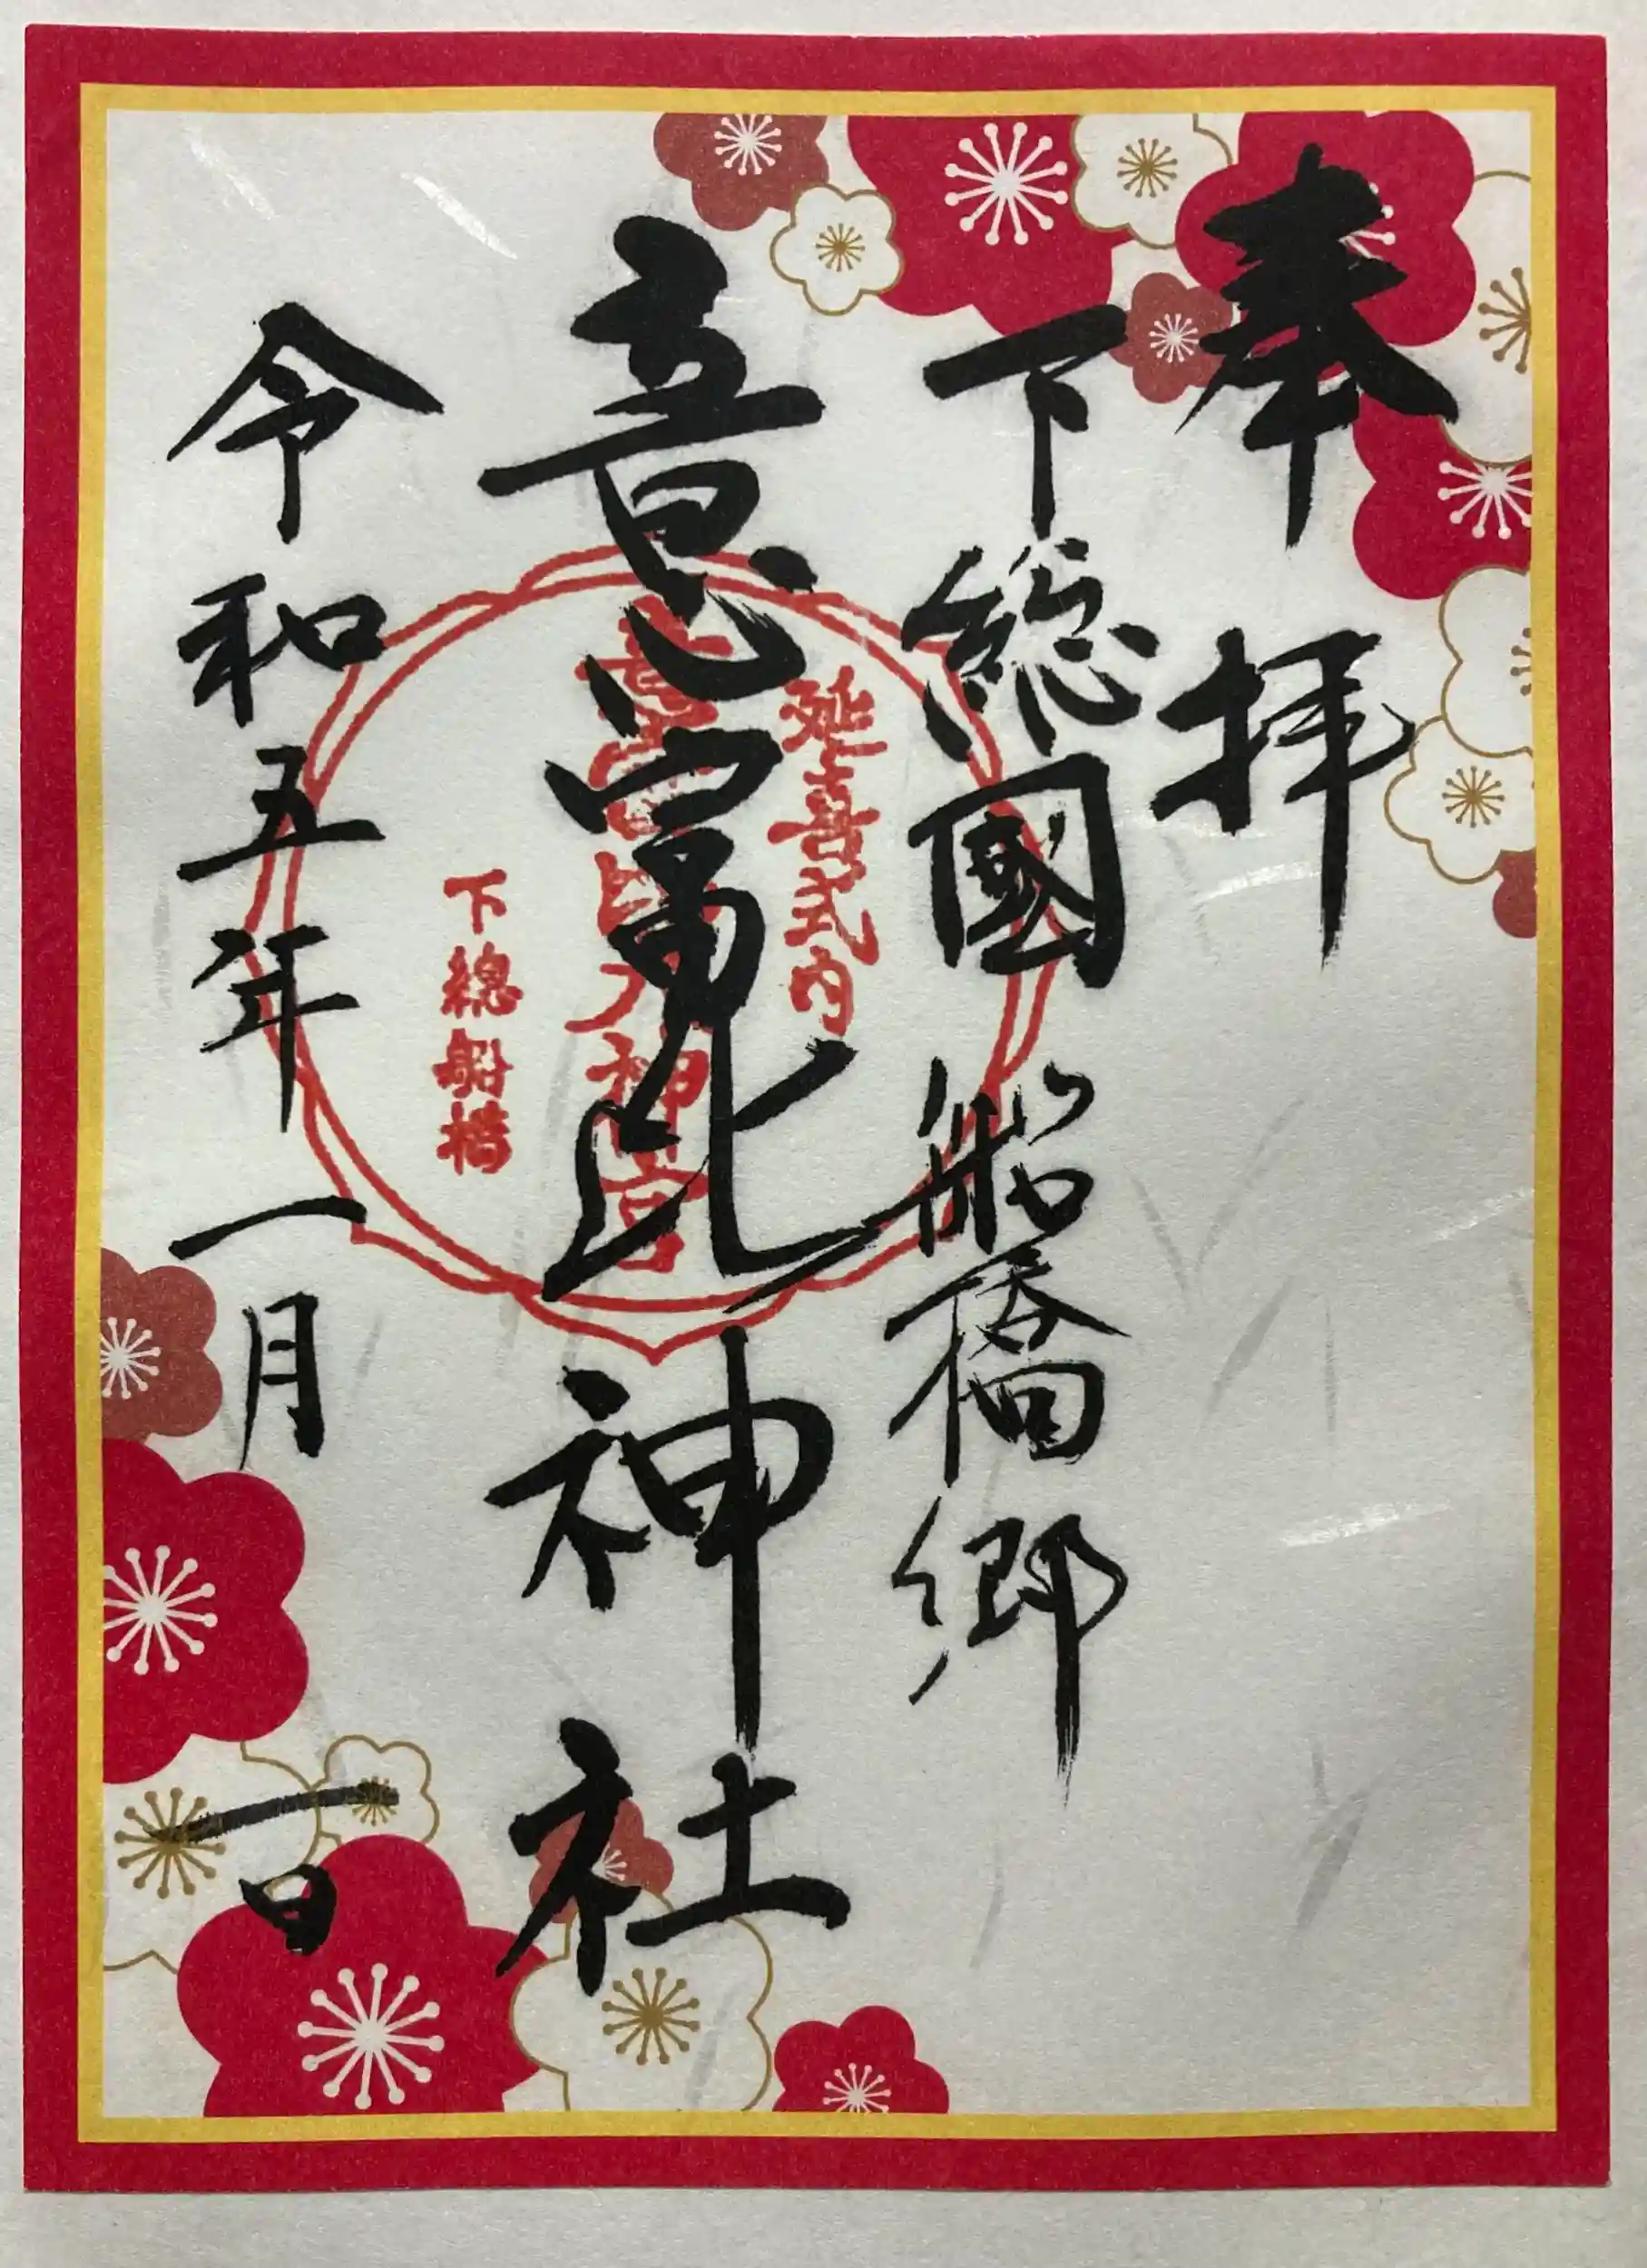 奉拝
下総國船橋郷
意富比神社
延喜式内
意富比大神宮
下總船橋
令和五年一月一日